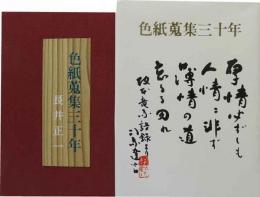 色紙蒐集三十年
長井正一
色紙蒐集三十年
厚情必ずしも
人情に非ず
薄情の道
忘るる勿れ